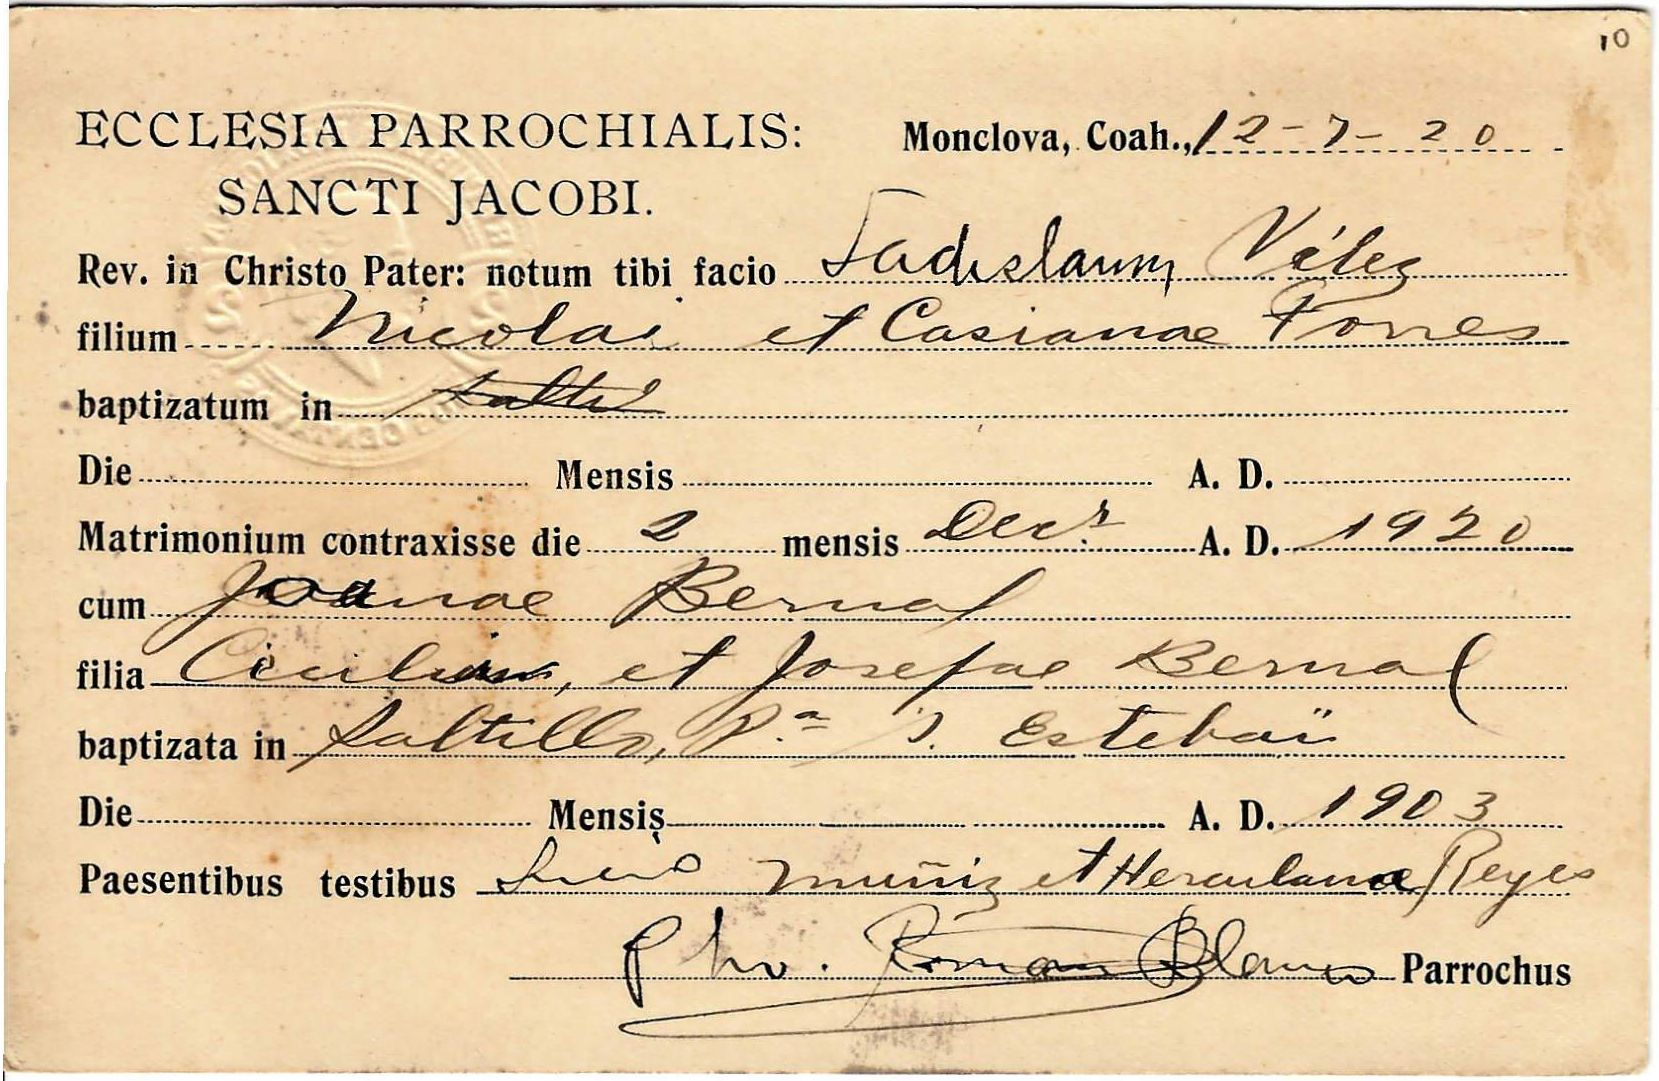 10
ECCLESIA PARROCHIALIS: Monclova, Coah., 12-7-20
SANCTI JACOBI.
Rev. in Christo Pater: notum tibi facio Ladislaum Vélez
filium Nicolai et Casianae Torres
baptizatum in
Die Mensis A. D.
Matrimonium contraxisse die 2 mensis Decr. A. D. 1920
cum Joanae Bernal
filia et Josefae Bernal
baptizata in Saltillo, P.ª S. Esteban
Die Mensis A. D. 1903
Paesentibus testibus Muñiz et Herculana Reyes
Pbro. Roman Blanco Parrochus